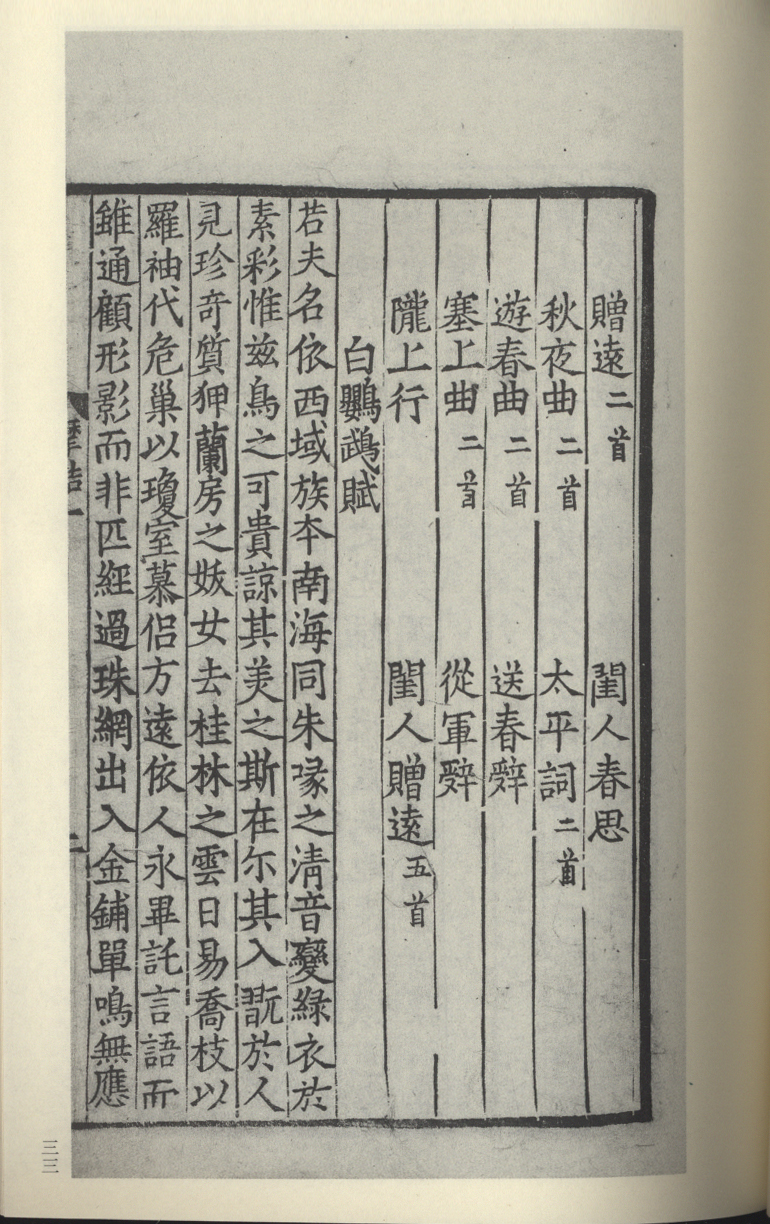 贈遠二首　閨人春思
秋夜曲二首　太平詞二首
遊春曲二首　送春辭
塞上曲二首　從軍辭
隴上行　閨人贈遠五首
白鸚鵡賦
若夫名依西域族夲南海同朱喙之清音變綠衣於
素彩惟茲鳥之可貴諒其羙之斯在尓其入翫於人
見珍奇質狎蘭房之妖女去桂林之雲日易喬枝以
羅袖代危巢以瓊室慕侣方遠依人永畢託言語而
雖通顧形影而非匹經過珠網出入金鋪單鳴無應
摩詰一
二
三三